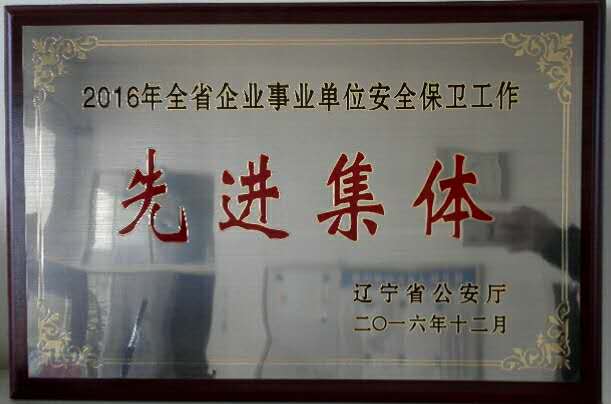 2016年全省企业事业单位安全保卫工作
先进集体
辽宁省公安厅
二〇一六年十二月